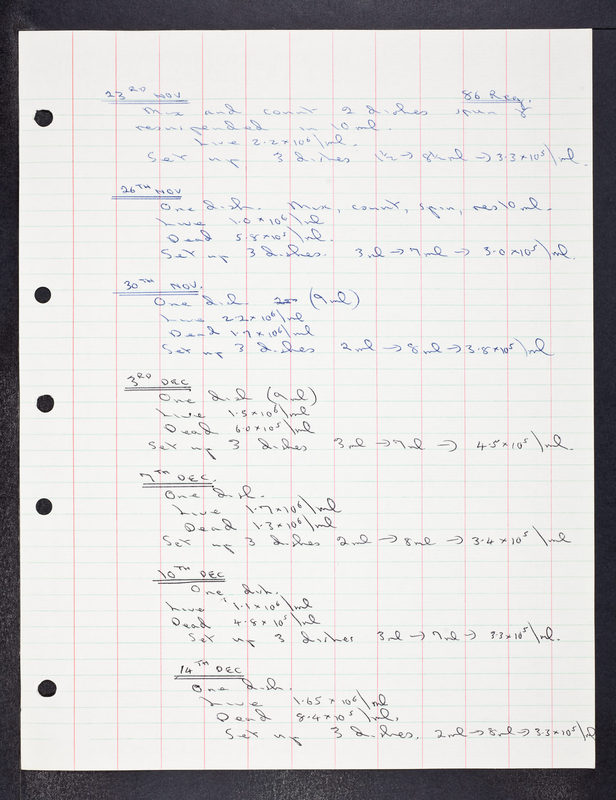 23RD NOV 86 Reg.
Mix and count 2 dishes spin &
resuspended in 10ml.
Live 2.2×10⁶/ml.
Set up 3 dishes 1½→8½ml→3.3×10⁵/ml.
26TH NOV
One dish. Mix, count, spin, res 10ml.
Live 1.0×10⁶/ml
Dead 5.8×10⁵/ml.
Set up 3 dishes. 3ml→7ml→ 3.0×10⁵/ml.
30TH NOV.
One dish (9ml)
Live 2.2×10⁶/ml
Dead 1.7×10⁶/ml
Set up 3 dishes 2ml→8ml→3.8×10⁵/ml
3RD DEC
One dish (9ml)
Live 1.5×10⁶/ml
Dead 6.0×10⁵/ml
Set up 3 dishes 3ml→7ml→ 4.5×10⁵/ml.
7TH DEC.
One dish.
Live 1.7×10⁶/ml
Dead 1.3×10⁶/ml
Set up 3 dishes 2ml→8ml→3.4×10⁵/ml
10TH DEC
One dish.
Live 1.1×10⁶/ml
Dead 4.8×10⁵/ml
Set up 3 dishes 3ml→7ml→ 3.3×10⁵/ml.
14TH DEC
One dish.
Live 1.65×10⁶/ml
Dead 8.4×10⁵/ml.
Set up 3 dishes. 2ml→8ml→3.3×10⁵/ml